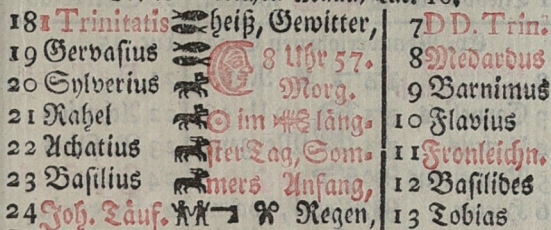 181 Trinitatis heiß, Gewitter, 7 D D. Trin.
19 Gervasius 8 Uhr 57. 8 Medardus
20 Sylverius Morg. 9 Barnimus
21 Rahel im läng- 10 Flavius
22 Achatius ster Tag, Som- 11 Fronleichn.
23 Basilius mers Anfang, 12 Basilides
24 Joh. Täuf. Regen, 13 Tobias